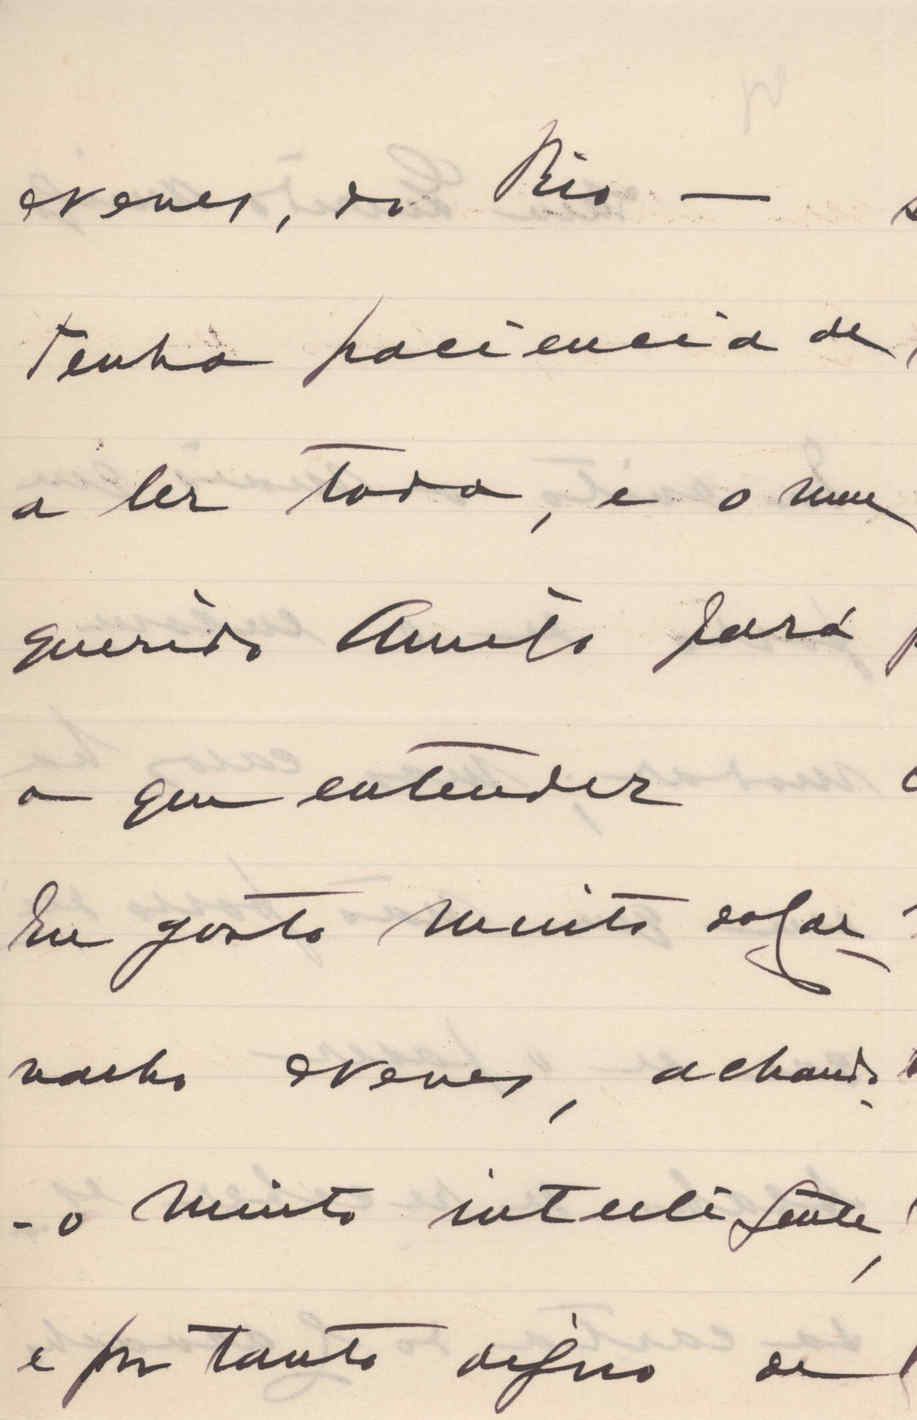 Neves, do Rio —
tenha paciencia de
a ler toda, e o meu
querido Amigo fará
o que entender
Eu gosto muito do Gar
nacho Neves, achando
-o muito intelligente,
e por tanto digno de